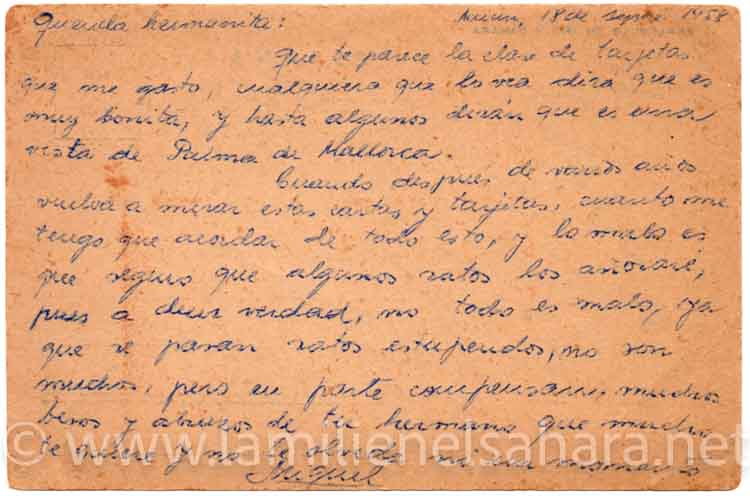 Querida hermanita: Aaiun, 18 de Sepbre 1958
Que te parece la clase de tarjetas
que me gasto, cualquiera que la vea dira que es
muy bonita, y hasta algunos dirán que es una
vista de Palma de Mallorca.
Cuando despues de varios años
vuelva a mirar estas cartas y tarjetas, cuanto me
tengo que acordar de todo esto, y lo malo es
que seguro que algunos ratos los añoraré,
pues a decir verdad, no todo es malo, ya
que se pasan ratos estupendos, no son
muchos, pero en parte compensan, muchos
besos y abrazos de tu hermano que mucho
te quiere y no te olvida ni un momento
Miguel
© www.lamilienelsahara.net